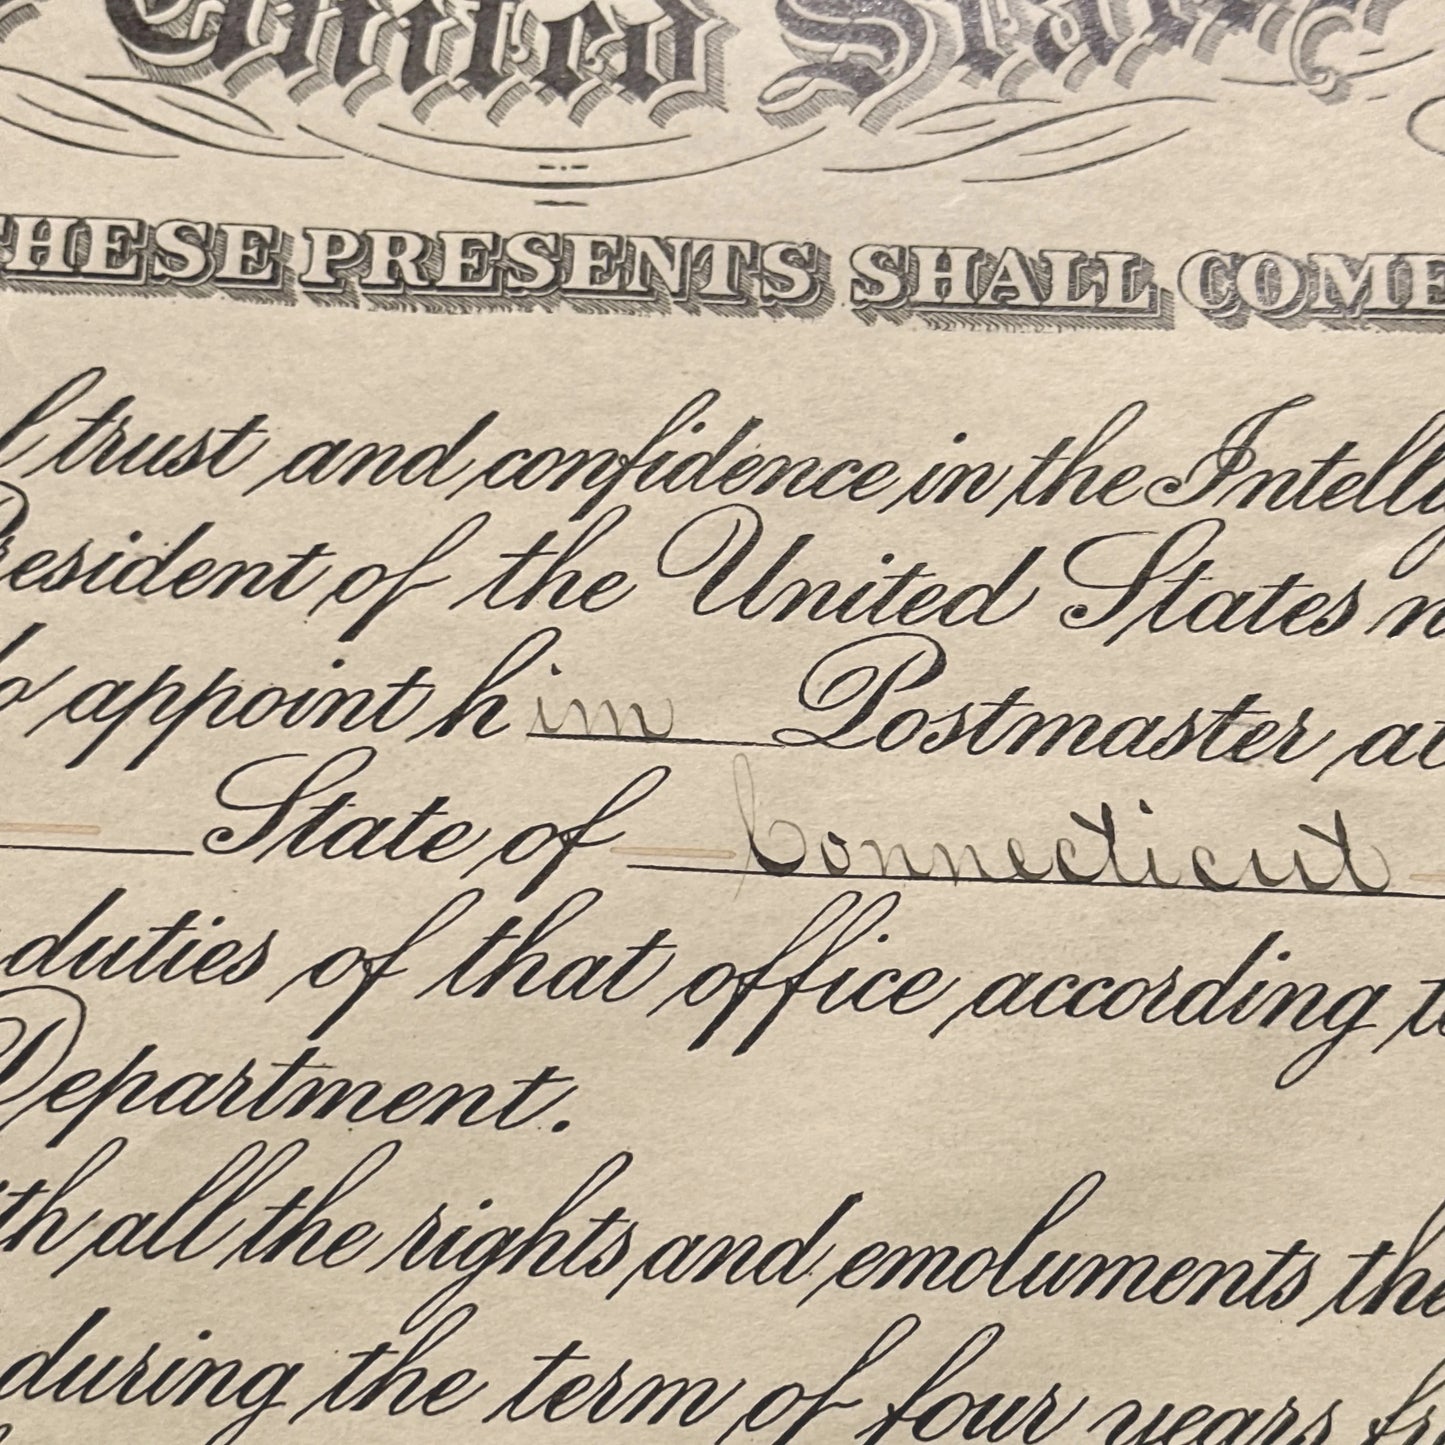 United States
THESE PRESENTS SHALL COME
l trust and confidence in the Intellig
President of the United States n
do appoint him Postmaster at
State of Connecticut
duties of that office according to
Department.
ith all the rights and emoluments the
during the term of four years fr